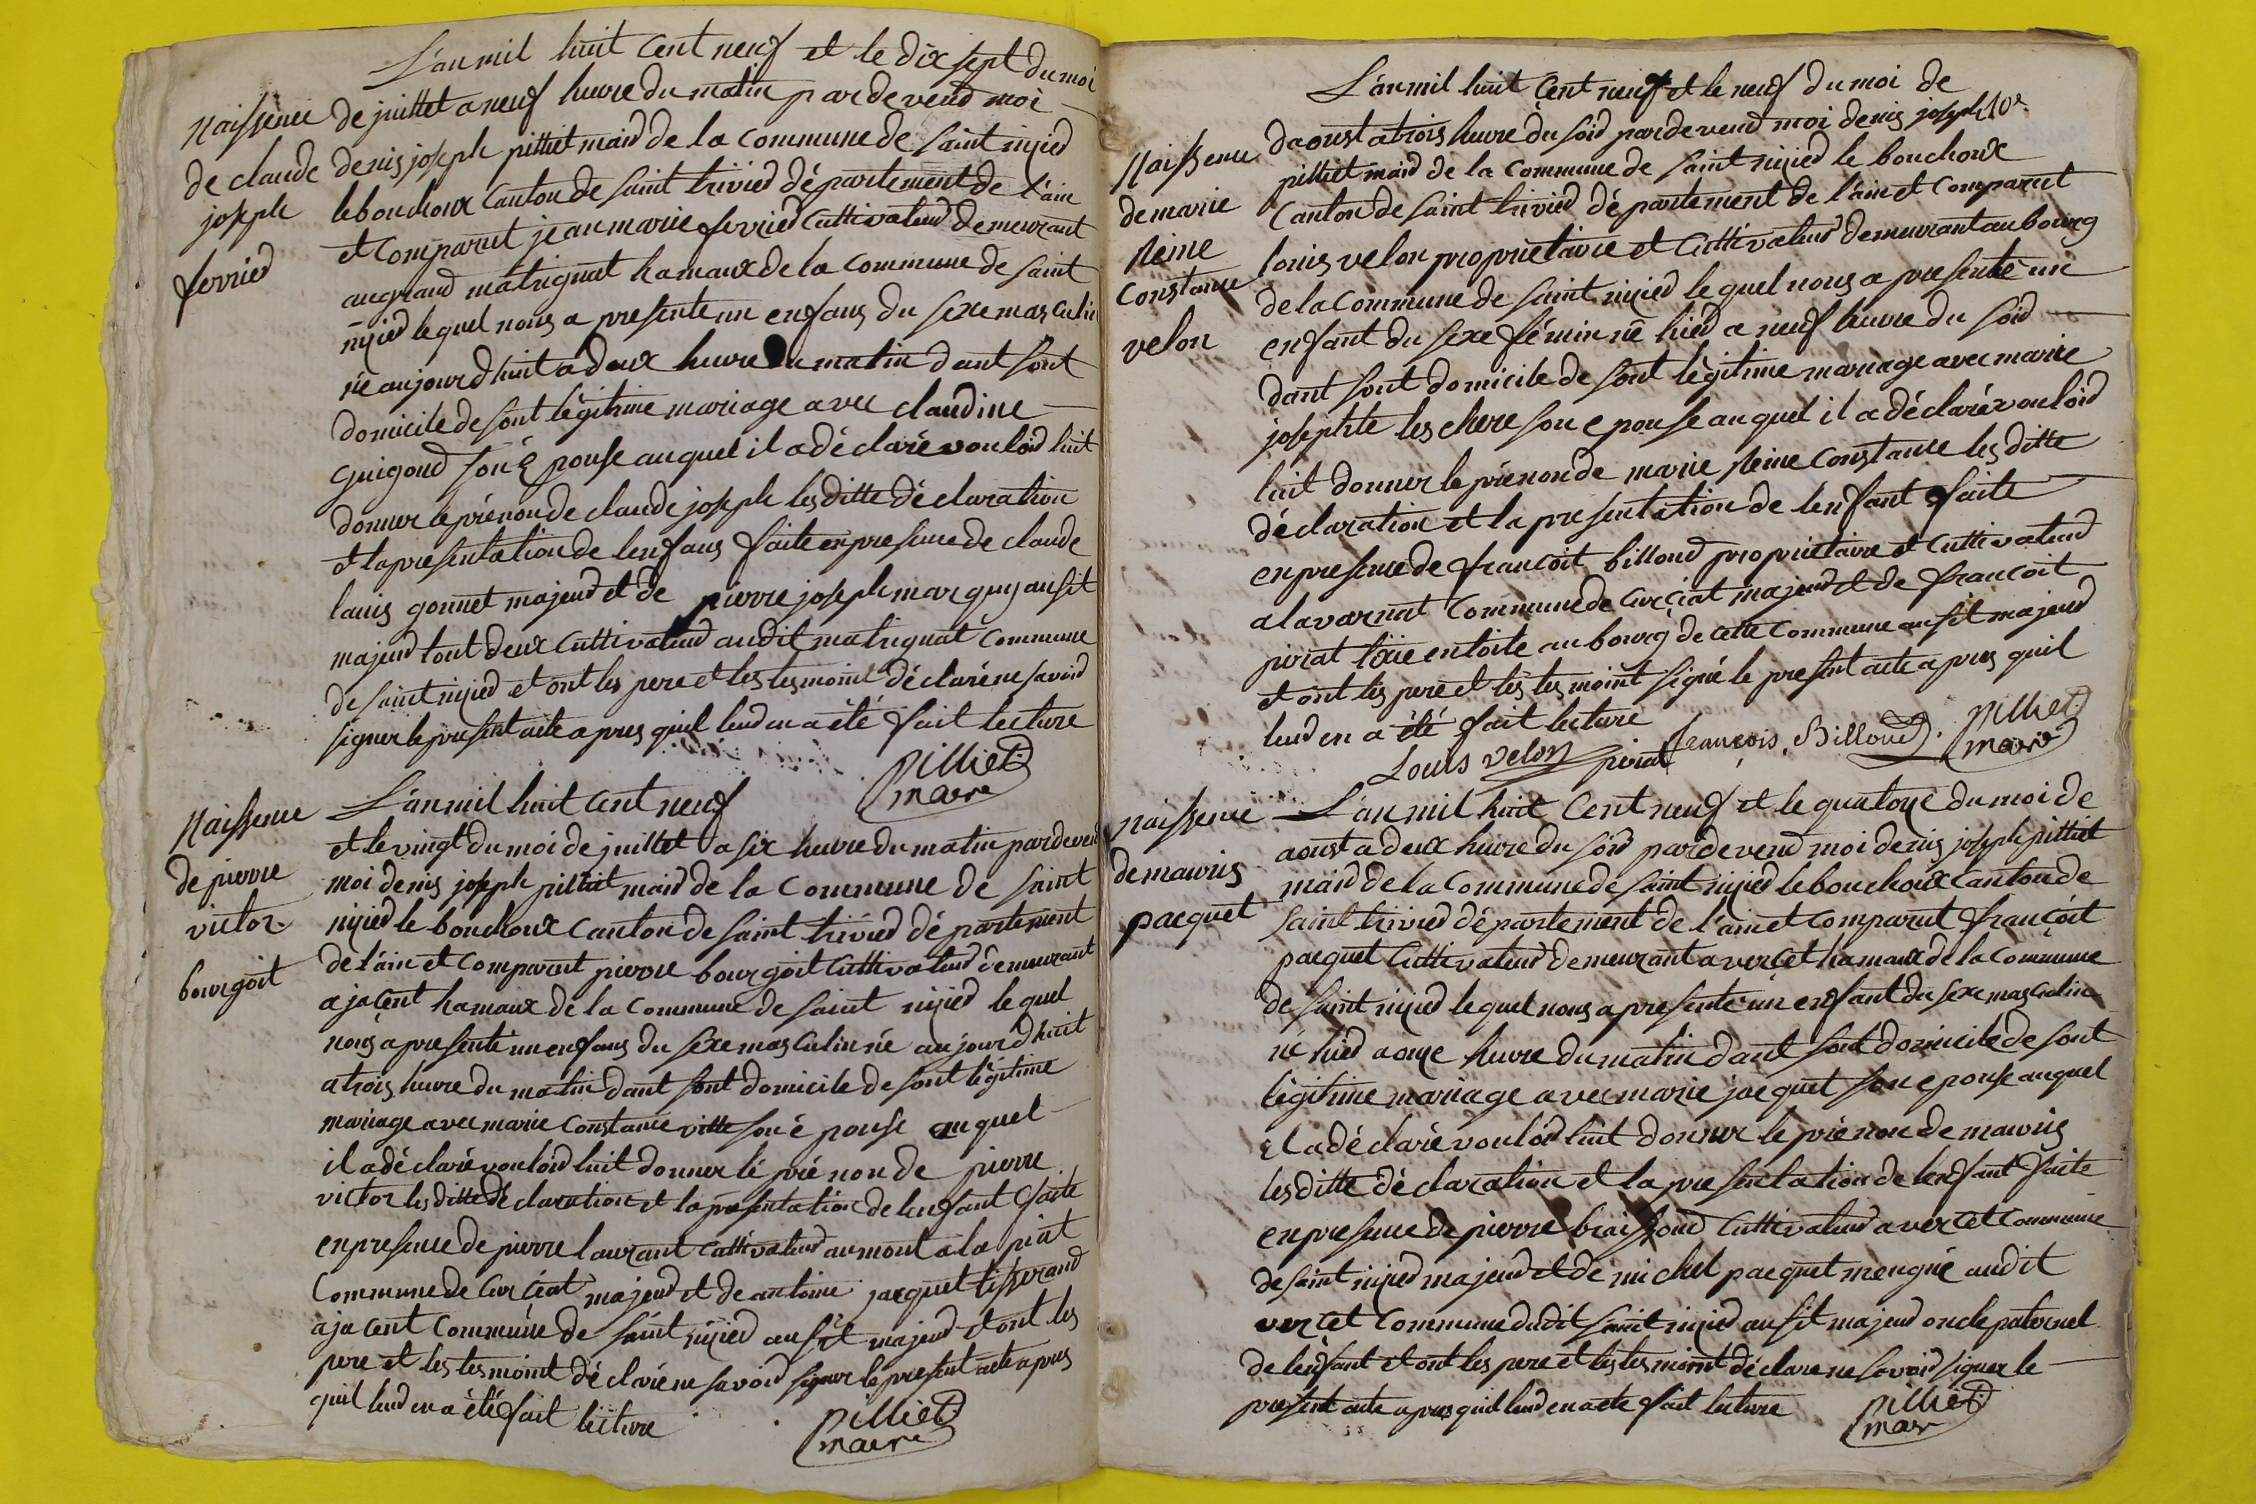 L'an mil huit cent neuf et le dix sept du moi
Naissence
de claude
joseph
ferried
de juillet a neuf heure du matin pardevend moi
denis joseph pilliet maid de la commune de saint nijied
lebouchoux canton de saint trivied département de l'ain
et comparut jean marie ferried cultivateud demeurant
au grand matrignat hamaux de la commune de saint
nijied lequel nous a presente un enfans du sexe masculin
né aujourdhuit a deux heure du matin dant sont
domicile de sont légitime mariage avec claudine
guigoud son épouse auquel il a déclaré vouloid luit
donner le prénon de claude joseph lesditte déclaration
et la presentation de lenfans faite en presence de claude
louis gonnet majeud et de pierre joseph marguy ausit
majeud tout deux cultivateud audit matrignat commune
de saint nijied et ont les pere et les tesmoint déclaré ne savoid
signer le present acte apres quil leud en a été fait lecture
pilliet
maire
Naissence
de pierre
victor
bourgoit
L'an mil huit cent neuf
et le vingt du moi de juillet a six heure du matin pardevend
moi denis joseph pilliet maid de la commune de saint
nijied le bouchoux canton de saint trivied département
de l'ain et comparut pierre bourgoit cultivateud demeurant
ajacent hamaux de la commune de saint nijied lequel
nous a presenté un enfans du sexe masculin né aujourdhuit
a trois heure du matin dant sont domicile de sont légitime
mariage avec marie constance ville son épouse auquel
il a déclaré vouloid luit donner lé prénon de pierre
victor les ditte déclaration et la présentation de lenfant faite
en presence de pierre laurant cultivateud au mont a la piat
commune de curciat majeud et de antoine jacquet tisserand
ajacent commune de saint nijied ausit majeud et ont les
pere et les tesmoint déclaré ne savoid signer le present acte apres
quil leud en a été fait lecture
pilliet
maire
L'an mil huit cent neuf et le neuf du moi de
Naissence
de marie
Reine
Constance
velon
daoust a trois heure du soid pardevend moi denis joseph 10e
pilliet maid de la commune de saint nijied le bouchoux
canton de saint trivied département de l'ain et comparut
louis velon propriétaire et cultivateud demeurant au bourg
de la commune de saint nijied lequel nous a presenté un
enfant du sexe féminin né hied a neuf heure du soid
dant sont domicile de sont légitime mariage avec marie
josephte leschere son epouse auquel il a déclaré vouloid
luit donner le prénon de marie Reine Constance les ditte
déclaration et la presentation de lenfant faite
en presence de francoit billoud propriétaire et cultivateud
a lavarnat commune de curciat majeud et de francoit
piriat tixie en toite au bourg de cette commune ausit majeud
et ont les pere et les tesmoint signé le present acte apres quil
leud en a été fait lecture
Louis velon piriat françois Billoud pilliet
maire
naissence
de mauris
pacquet
L'an mil huit cent neuf et le quatorze du moi de
aoust a deux heure du soid pardevend moi denis joseph pilliet
maid de la commune de saint nijied le bouchoux canton de
saint trivied département de l'ain et comparut françoit
pacquet cultivateud demeurant a vercet hamaux de la commune
de saint nijied lequel nous a presenté un enfant du sexe masculin
né hied a onze heure du matin dant sont domicile de sont
légitime mariage avec marie jacquet son epouse auquel
il a déclaré vouloid luit donner le prénon de mauris
les ditte déclaration et la presentation de lenfant faite
en presence de pierre braissoud cultivateud a vercet commune
de saint nijied majeud et de michel pacquet mengné audit
vercet commune dudit saint nijied ausit majeud oncle paternel
de lenfant et ont les pere et les tesmoint déclare ne savoid signer le
present acte apres quil leud en a ete fait lecture
pilliet
maire